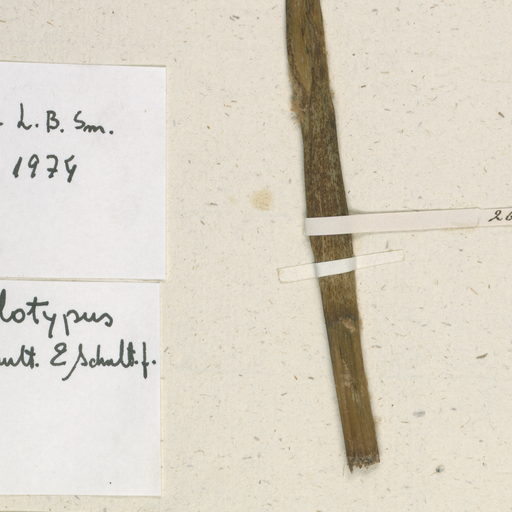 L. B. Sm.
1974
lotypus
ult. & Schult. f.
26